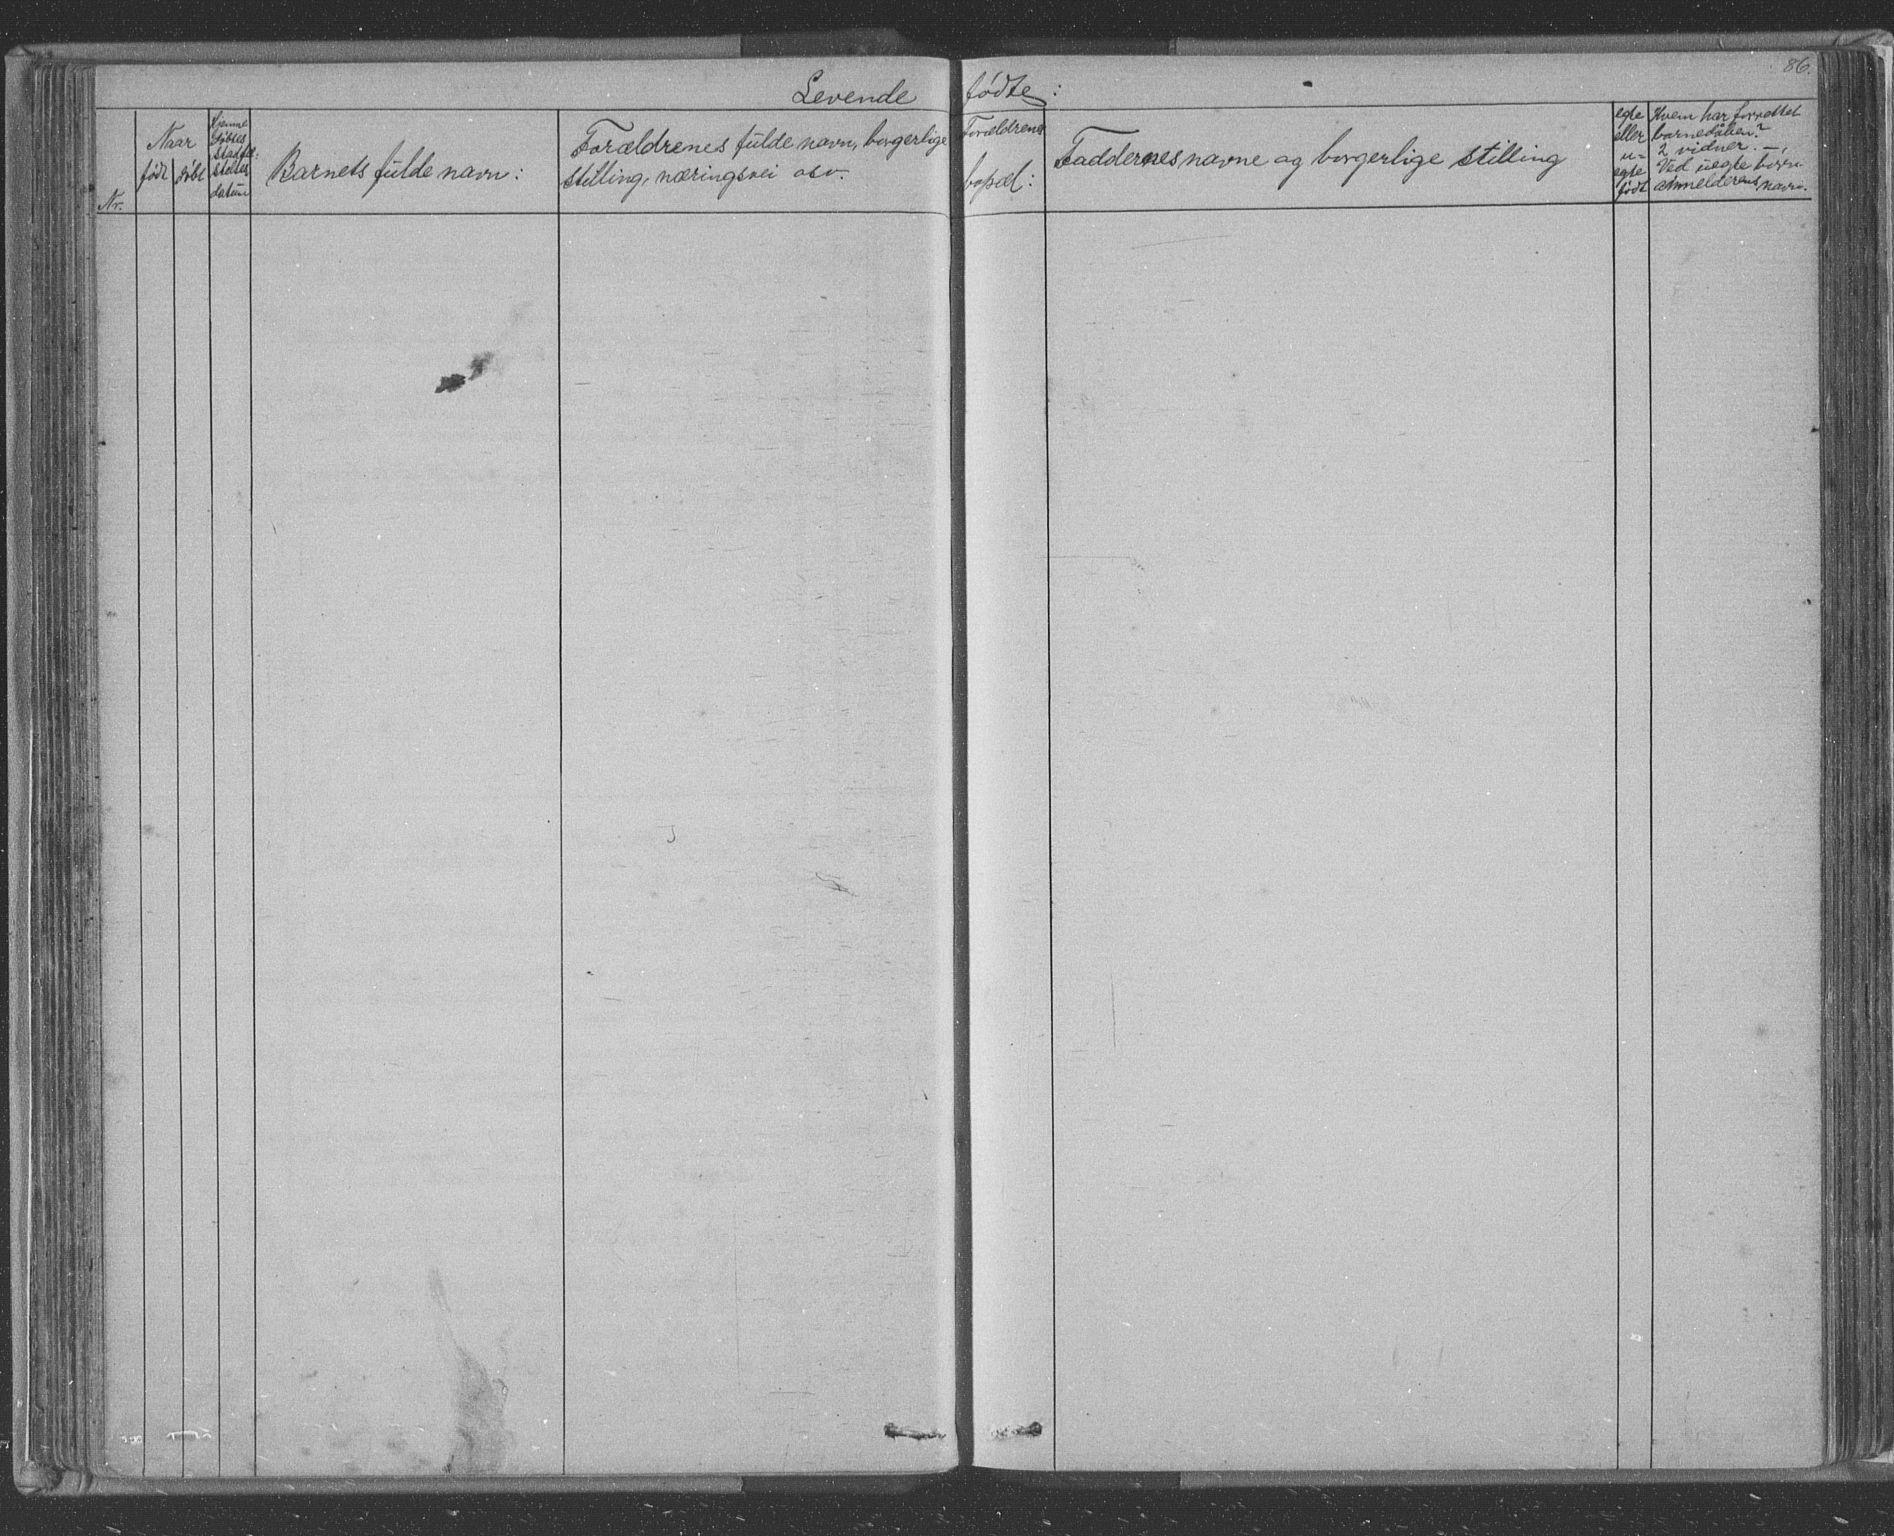 86.
Levende fødte:
Nr.
Naar
født
døbt
Hjemme
døbtes
stadfæ-
stelses
datum
Barnets fulde navn:
Forældrenes fulde navn, borgerlige
stilling, næringsvei osv.
Forældrenes
bopæl:
Faddernes navne og borgerlige stilling
egte
eller
u-
egte
født
Hvem har forrettet
barnedåben?
2 vidner. —
Ved uegte børn
anmelderens navn.